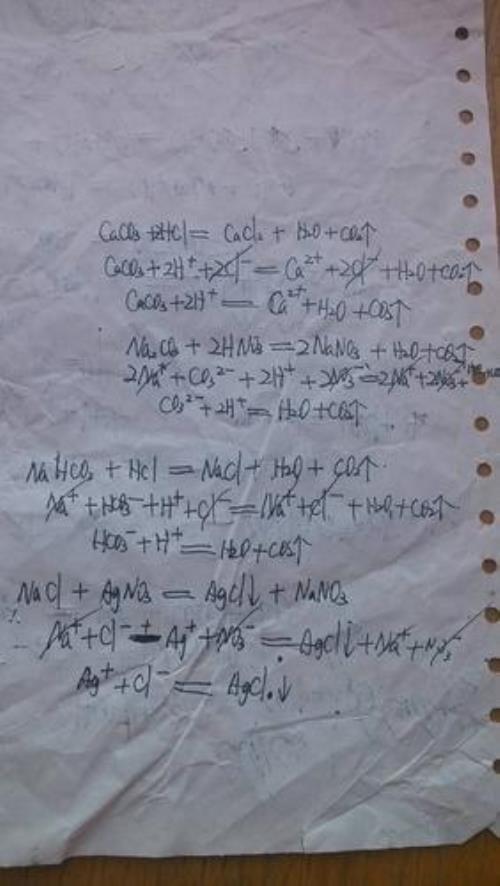 CaCO₃ + 2HCl = CaCl₂ + H₂O + CO₂↑
CaCO₃ + 2H⁺ + 2Cl⁻ = Ca²⁺ + 2Cl⁻ + H₂O + CO₂↑
CaCO₃ + 2H⁺ = Ca²⁺ + H₂O + CO₂↑
Na₂CO₃ + 2HNO₃ = 2NaNO₃ + H₂O + CO₂↑
2Na⁺ + CO₃²⁻ + 2H⁺ + 2NO₃⁻ = 2Na⁺ + 2NO₃⁻ +
CO₃²⁻ + 2H⁺ = H₂O + CO₂↑
NaHCO₃ + HCl = NaCl + H₂O + CO₂↑
Na⁺ + HCO₃⁻ + H⁺ + Cl⁻ = Na⁺ + Cl⁻ + H₂O + CO₂↑
HCO₃⁻ + H⁺ = H₂O + CO₂↑
NaCl + AgNO₃ = AgCl↓ + NaNO₃
Na⁺ + Cl⁻ + Ag⁺ + NO₃⁻ = AgCl↓ + Na⁺ + NO₃⁻
Ag⁺ + Cl⁻ = AgCl↓